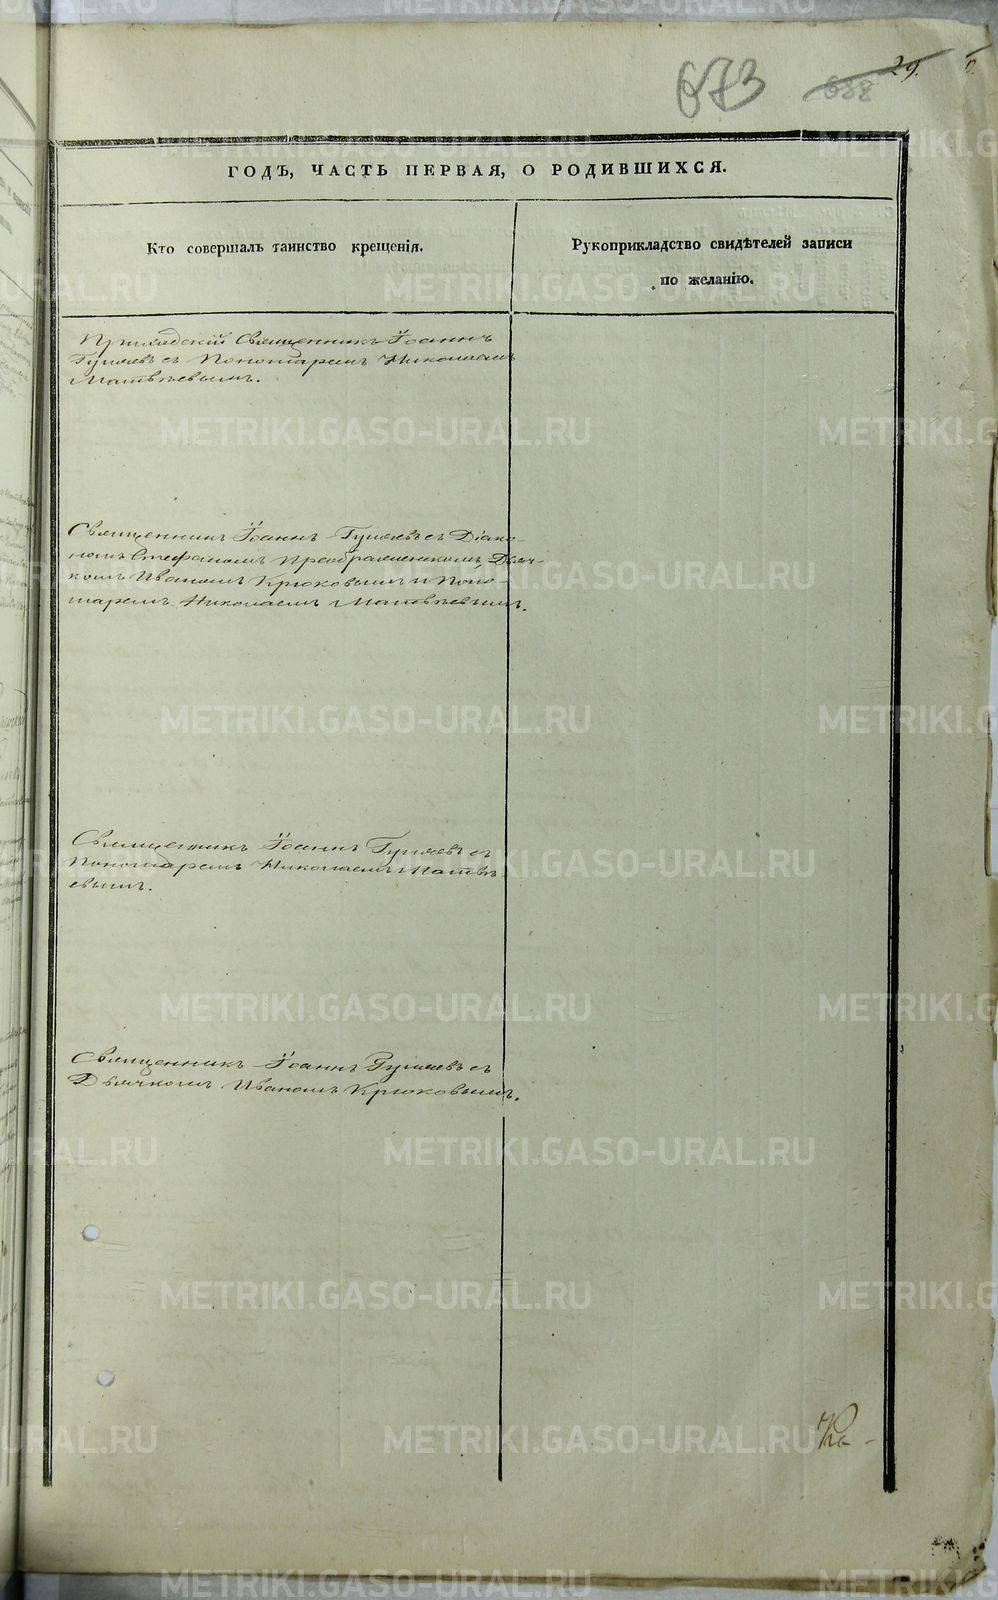 673 688 29.
ГОДЪ, ЧАСТЬ ПЕРВАЯ, О РОДИВШИХСЯ.
Кто совершалъ таинство крещенія.
Рукоприкладство свидѣтелей записи
по желанію.
Приходскій Священникъ Іоаннъ
Гуляевъ съ Пономаремъ Николаемъ
Матвѣевымъ.
Священникъ Іоаннъ Гуляевъ съ Діако-
номъ Стефаномъ Преображенскимъ, Дьяч-
комъ Иваномъ Крюковымъ и Поно-
маремъ Николаемъ Матвѣевымъ.
Священникъ Іоаннъ Гуляевъ съ
Пономаремъ Николаемъ Матвѣ
евымъ.
Священникъ Іоаннъ Гуляевъ съ
Дьячкомъ Иваномъ Крюковымъ.
METRIKI.GASO-URAL.RU